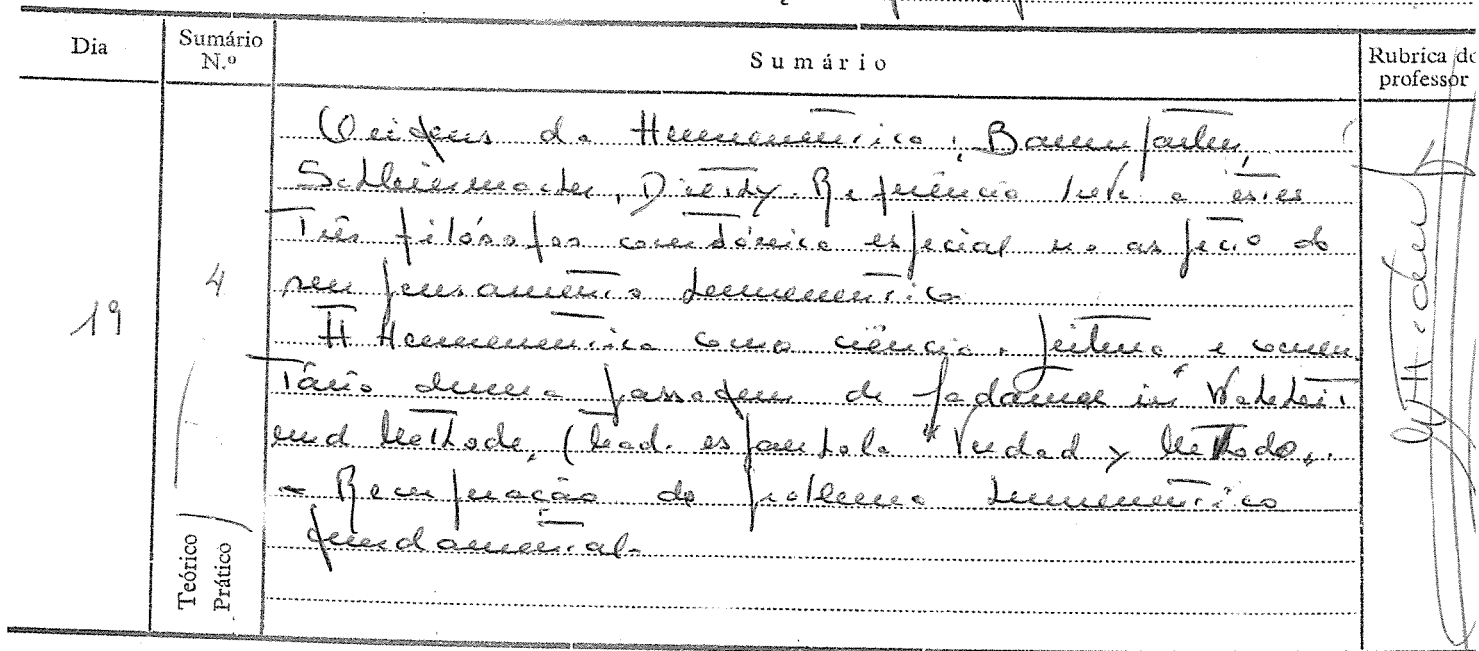 Dia
Sumário N.º
Sumário
Rubrica do professor
19
4
Teórico
Prático
Origens da Hermenêutica: Baumgarten,
Schleiermacher, Dilthey. Referência breve a estes
três filósofos com tónica especial no aspecto do
seu pensamento hermenêutico
A Hermenêutica como ciência. Leitura e comen
tário duma passagem de Gadamer in Wahrheit
und Methode, (trad. espanhola "Verdad y Methodo"
- Recuperação do problema hermenêutico
fundamental.